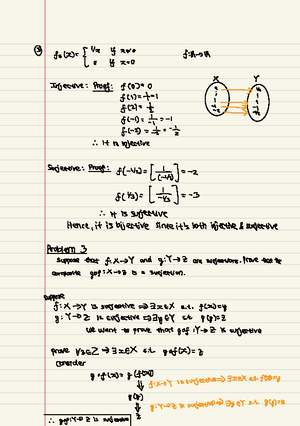 ③ f₃(x) = { 1/x if x≠0
0 if x=0
f: ℝ→ℝ
Injective: Proof: f(0) = 0
f(1) = 1/1 = 1
f(2) = 1/2
f(-1) = 1/-1 = -1
f(-2) = 1/-2 = -1/2
∴ It is injective
X Y
Surjective: Proof: f(-1/2) = [1/(-1/2)] = -2
f(1/3) = [1/-1/3] = -3
∴ It is surjective
Hence, it is bijective since it's both injective & surjective
Problem 3
Suppose that f: X→Y and g: Y→Z are surjective. Prove that the
composite gof: X→Z is a surjection.
Suppose
f: X→Y is surjective ⇒ ∃x∈X s.t. f(x)=y
g: Y→Z is surjective ⇒ ∃y∈Y s.t. g(y)=z
We want to prove that gof: Y→Z is surjective
Prove ∀z∈Z → ∃x∈X s.t. gof(x)=z
Consider
g∘f(x) = g(f(x))
⇓ f: X→Y is surjective ⇒ ∃x∈X s.t. f(x)=y
g(y)
⇓ g: Y→Z is surjective ⇒ ∃y∈Y s.t. g(y)=z
z
∴ gof: Y→Z is surjective